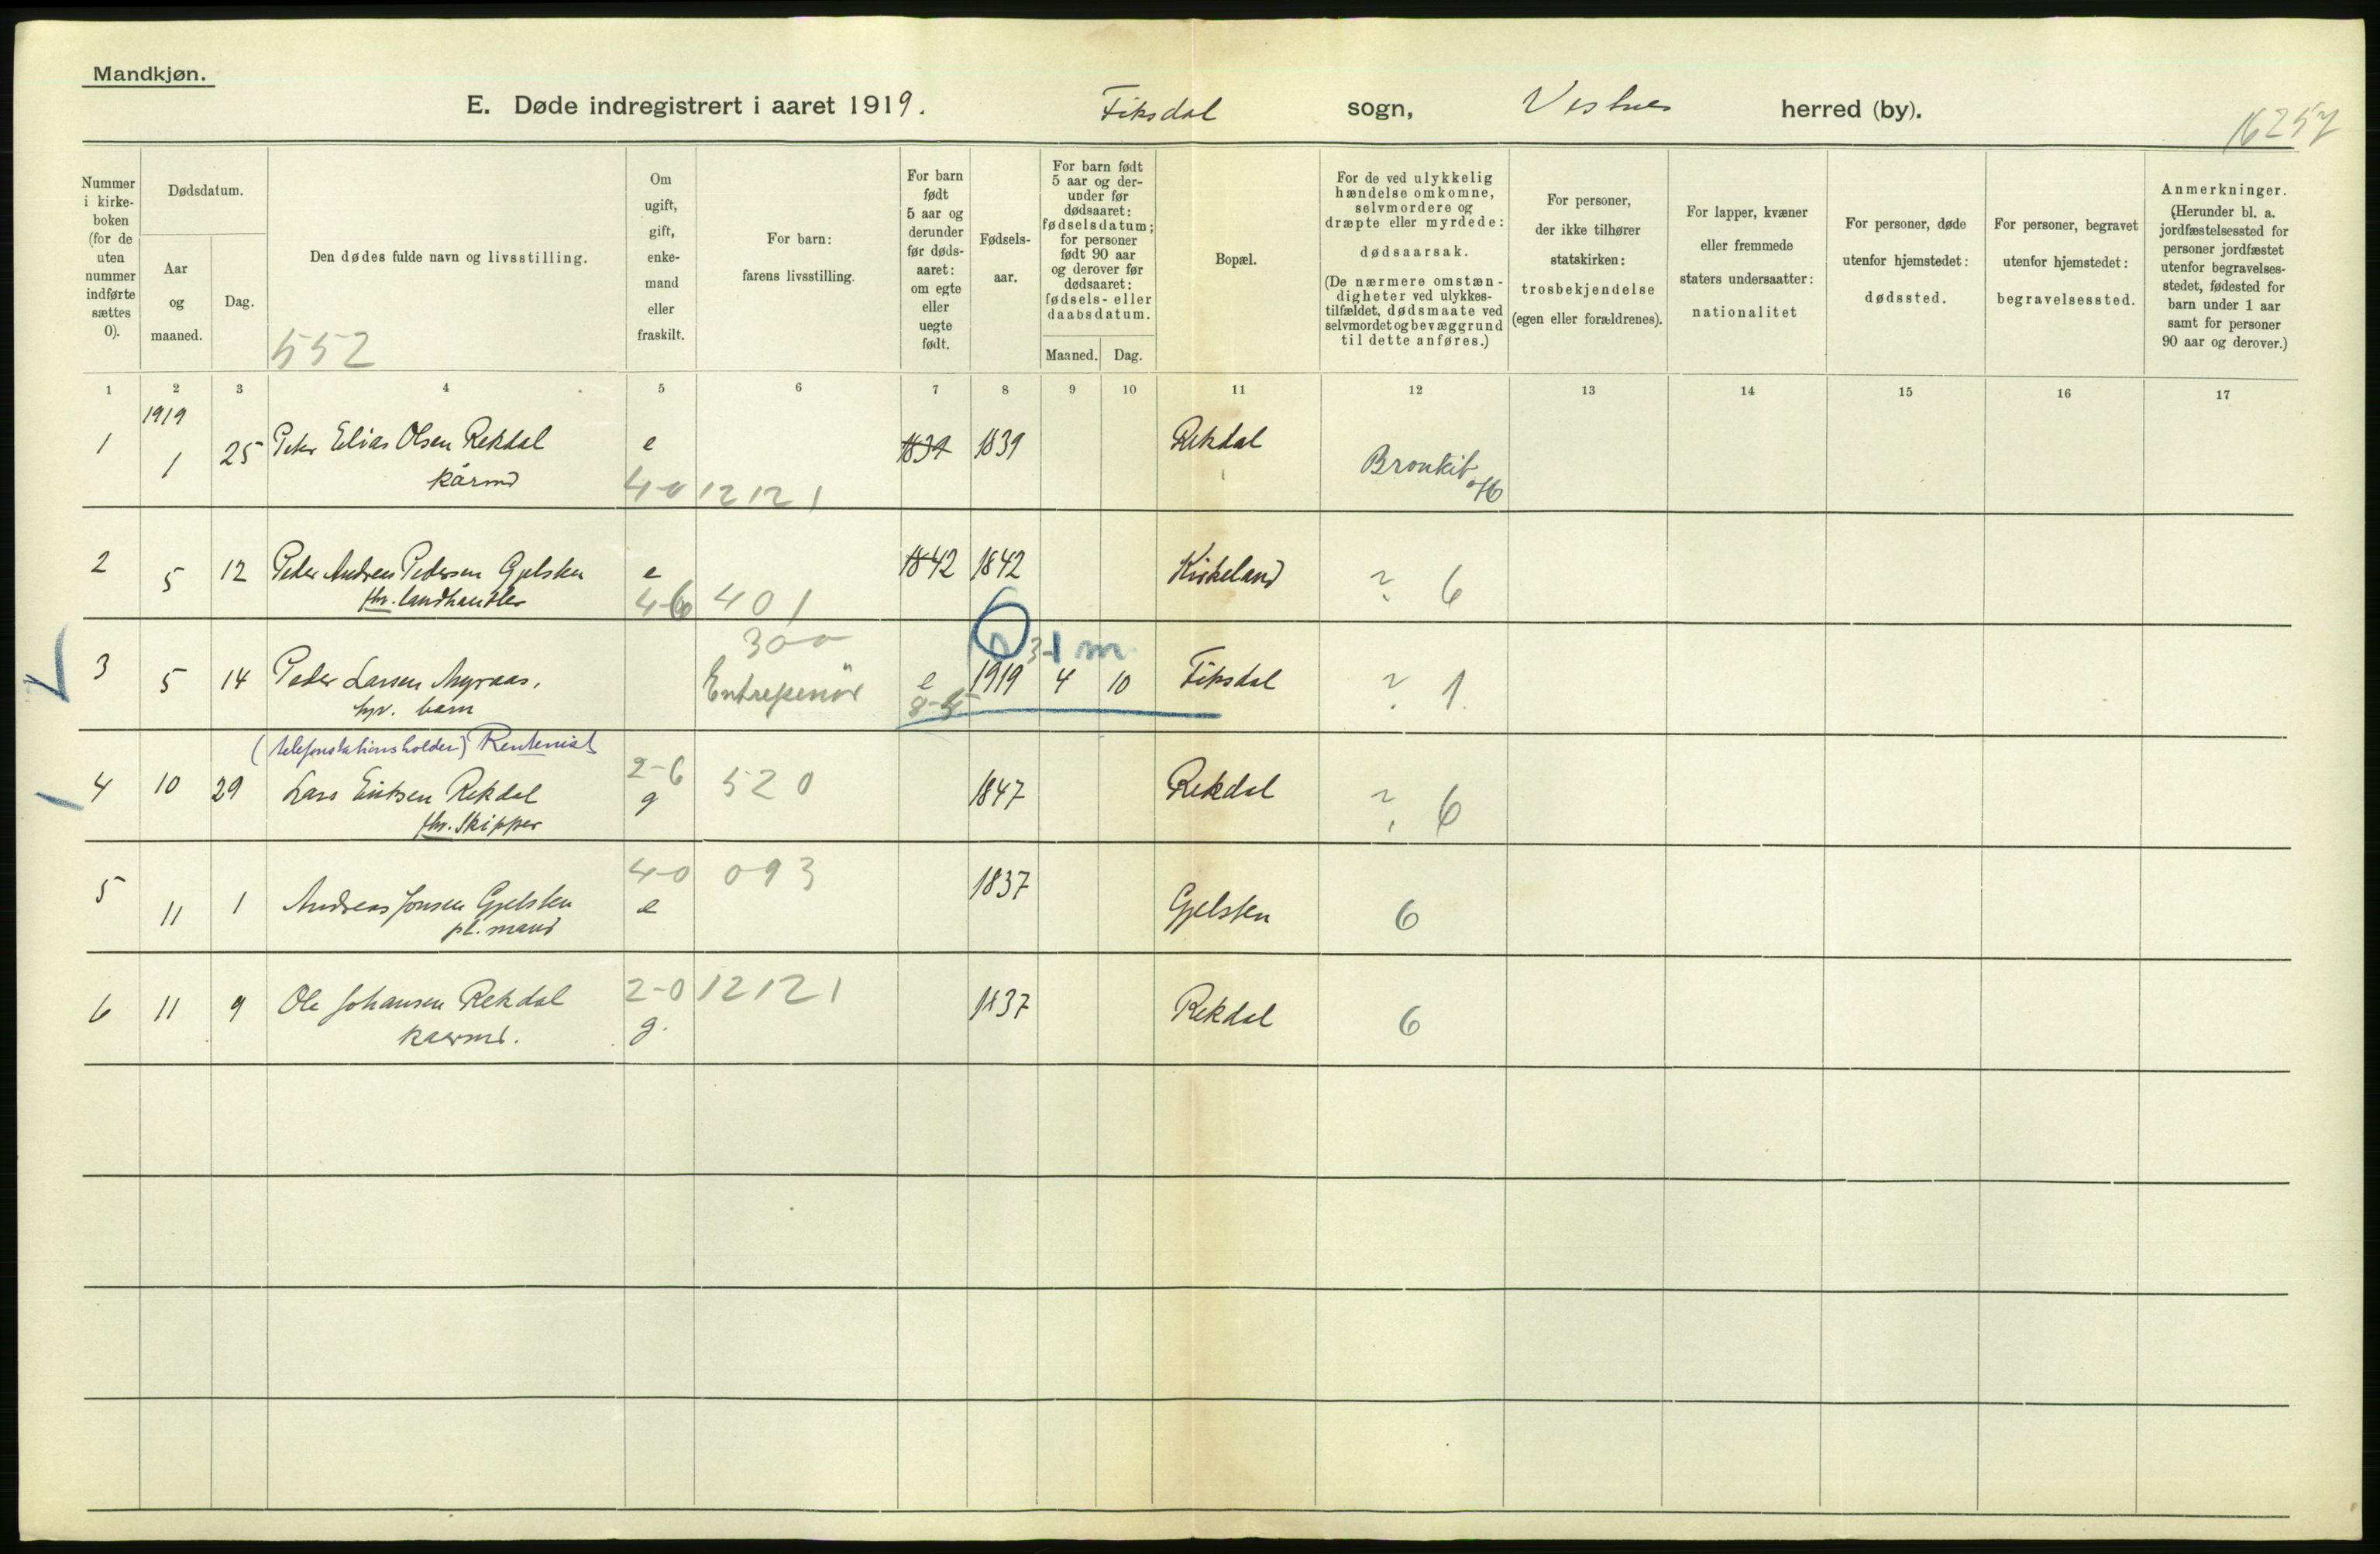 Mandkjøn.
E. Døde indregistrert i aaret 1919. Fiksdal sogn, Vestnes herred (by).
16257
Nummer i kirke-boken (for de uten nummer indførte sættes 0).
Dødsdatum.
Aar og maaned.
Dag.
Den dødes fulde navn og livsstilling.
552
Om ugift, gift, enke-mand eller fraskilt.
For barn: farens livsstilling.
For barn født 5 aar og derunder før døds-aaret: om egte eller uegte født.
Fødsels-aar.
For barn født 5 aar og der-under før dødsaaret: fødselsdatum; for personer født 90 aar og derover før dødsaaret: fødsels- eller daabsdatum.
Maaned. Dag.
Bopæl.
For de ved ulykkelig hændelse omkomne, selvmordere og dræpte eller myrdede: dødsaarsak. (De nærmere omstæn-digheter ved ulykkes-tilfældet, dødsmaate ved selvmordet og bevæggrund til dette anføres.)
For personer, der ikke tilhører statskirken: trosbekjendelse (egen eller forældrenes).
For lapper, kvæner eller fremmede staters undersaatter: nationalitet
For personer, døde utenfor hjemstedet: dødssted.
For personer, begravet utenfor hjemstedet: begravelsessted.
Anmerkninger. (Herunder bl. a. jordfæstelsessted for personer jordfæstet utenfor begravelses-stedet, fødested for barn under 1 aar samt for personer 90 aar og derover.)
1 2 3 4 5 6 7 8 9 10 11 12 13 14 15 16 17
1919
1 1 25 Peter Elias Olsen Rekdal e 1839 1839 Rekdal Bronkit
kårmd 4-0 12121
2 5 12 Peder Andreas Pedersen Gjelsten e 1842 1842 Kirkeland ? 6
fhv. landhandler 4-6 401
300 6 31 m
3 5 14 Peder Larsen Myraas, Entreprenör e 1919 4 10 Fiksdal ? 1
hjv. barn 8-5
(telefonstationsholder) Rentenist
2-6 520
4 10 29 Lars Eriksen Rekdal g 1847 Rekdal ? 6
fhv. Skipper
4-0 093
5 11 1 Andreas Jonsen Gjelsten e 1837 Gjelsten 6
pl. mand
2-0 12121
6 11 9 Ole Johansen Rekdal g. 1837 Rekdal 6
kaarmd.